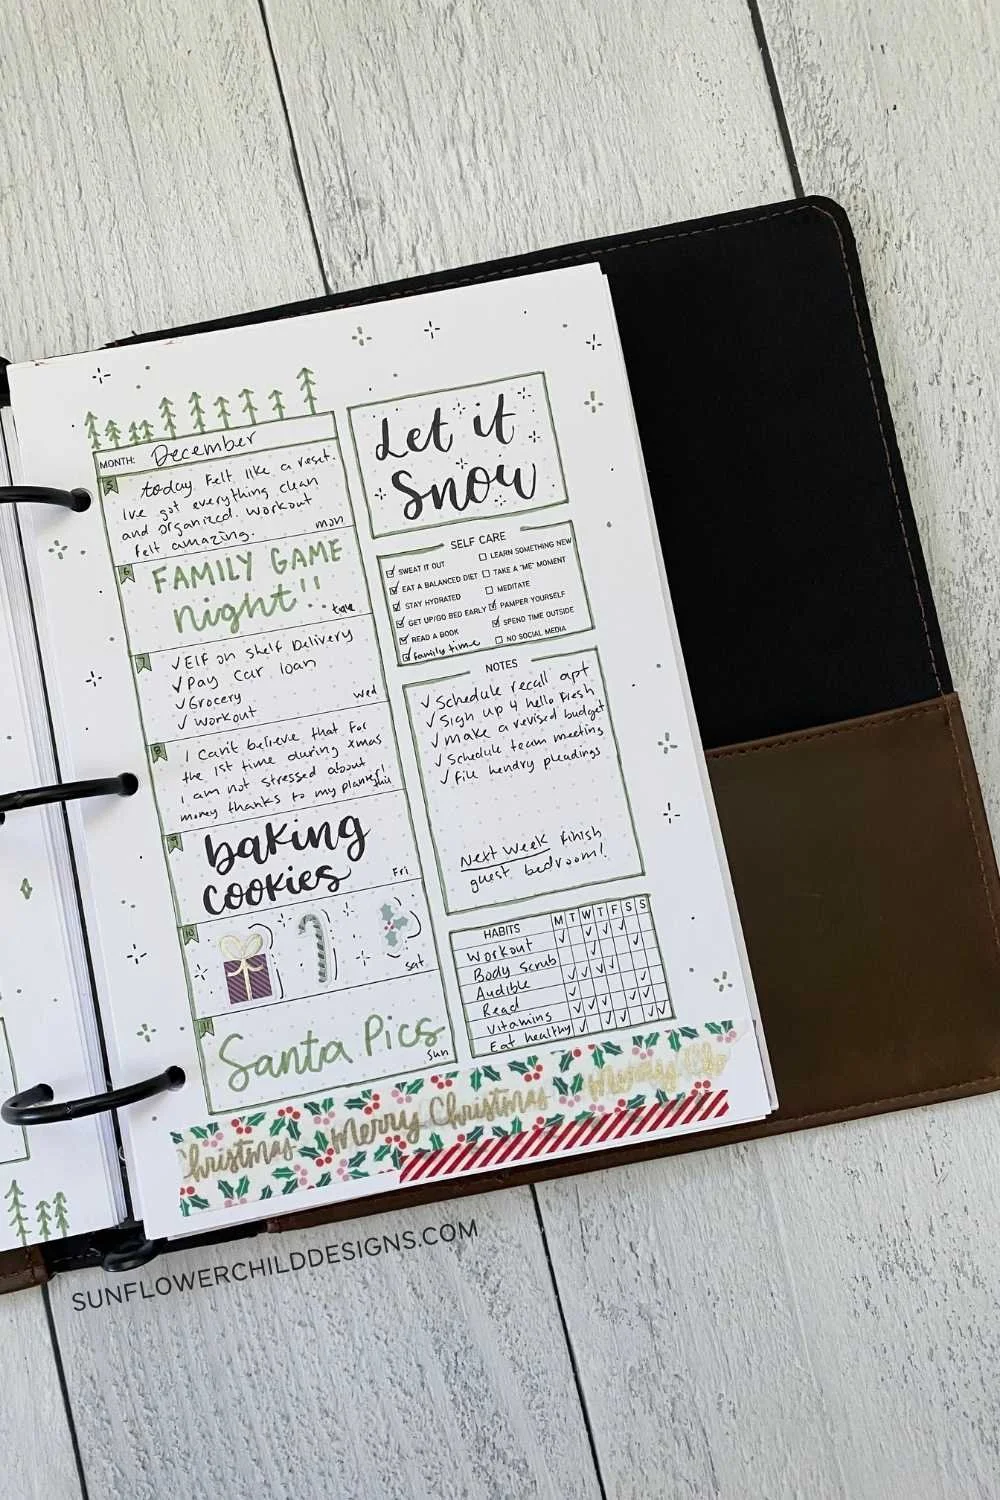 MONTH: December
5
today felt like a reset.
Ive got everything clean
and organized. workout
felt amazing.
mon
6
FAMILY GAME
night!!
tue
7
✓ Elf on shelf Delivery
✓ Pay car loan
✓ Grocery
✓ workout
wed
8
I can't believe that for
the 1st time during xmas
I am not stressed about
money thanks to my planner!
thu
9
baking
cookies
Fri
10
sat
11
Santa Pics
Sun
Let it
Snow
SELF CARE
SWEAT IT OUT
EAT A BALANCED DIET
STAY HYDRATED
GET UP/GO BED EARLY
READ A BOOK
family time
LEARN SOMETHING NEW
TAKE A "ME" MOMENT
MEDITATE
PAMPER YOURSELF
SPEND TIME OUTSIDE
NO SOCIAL MEDIA
NOTES
✓ Schedule recall apt
✓ Sign up 4 hello fresh
✓ make a revised budget
✓ Schedule team meeting
✓ file hendry pleadings
Next Week finish
guest bedroom!
HABITS M T W T F S S
Workout
Body Scrub
Audible
Read
Vitamins
Eat healthy
Christmas Merry Christmas Merry Ch
SUNFLOWERCHILDDESIGNS.COM